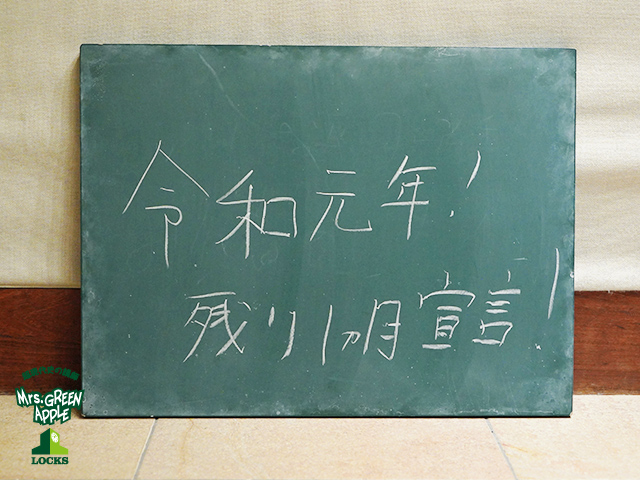 令和元年!
残り1ヵ月宣言!
Mrs. GREEN
APPLE
LOCKS